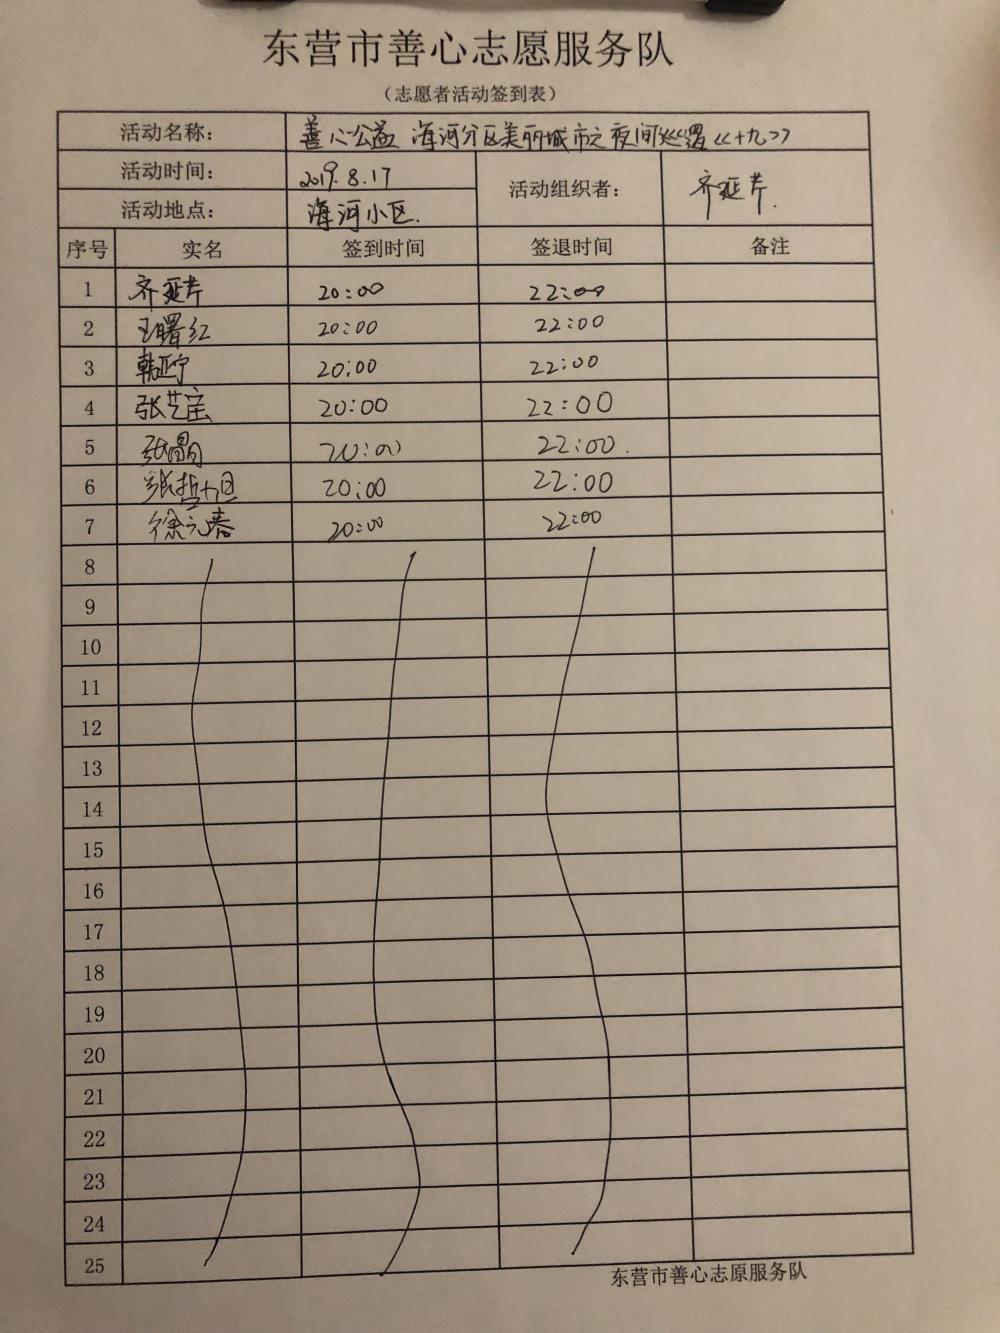 东营市善心志愿服务队
（志愿者活动签到表）
活动名称： 善心公益 海河分区美丽城市之夜间巡逻<<十九>>
活动时间： 2019.8.17 活动组织者： 齐延芹.
活动地点： 海河小区.
序号 实名 签到时间 签退时间 备注
1 齐延芹 20:00 22:00
2 王曙红 20:00 22:00
3 韩亚宁 20:00 22:00
4 张艺宝 20:00 22:00
5 20:00 22:00.
6 张哲 20:00 22:00
7 徐元春 20:00 22:00
8
9
10
11
12
13
14
15
16
17
18
19
20
21
22
23
24
25
东营市善心志原服务队